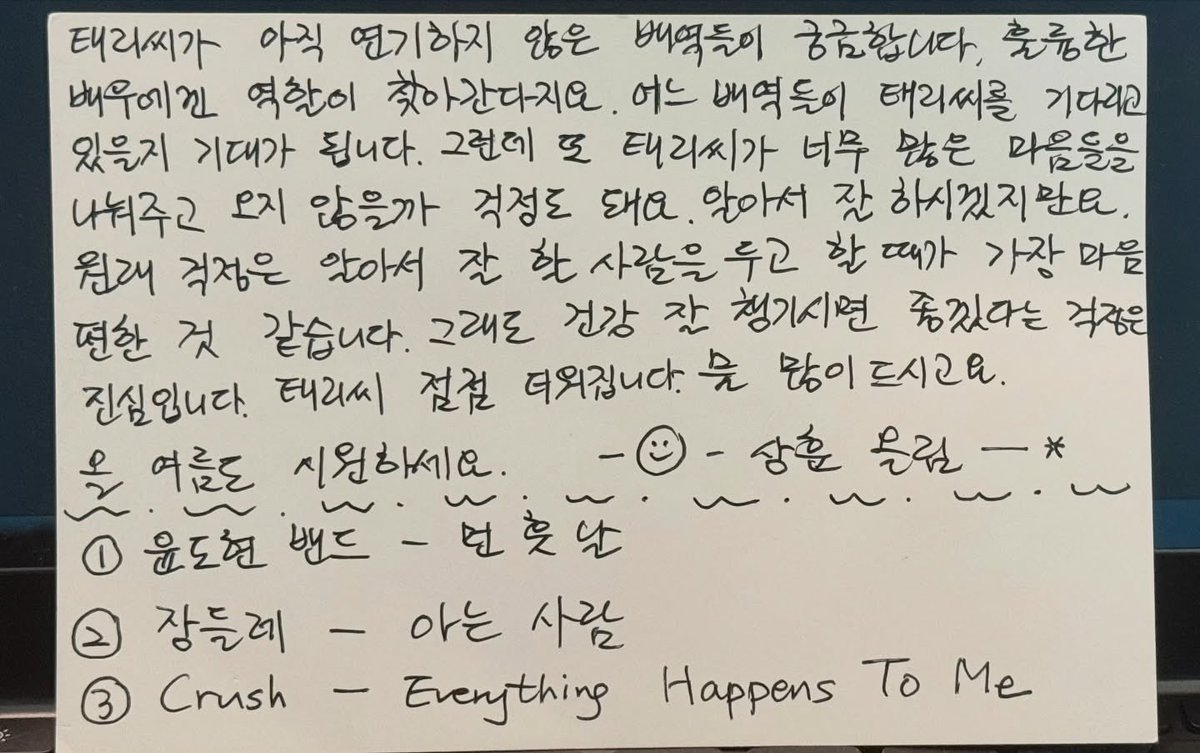 태리씨가 아직 연기하지 않은 배역들이 궁금합니다. 훌륭한
배우에겐 역할이 찾아간다지요. 어느 배역들이 태리씨를 기다리고
있을지 기대가 됩니다. 그런데 또 태리씨가 너무 많은 마음들을
나눠주고 오지 않을까 걱정도 돼요. 알아서 잘 하시겠지만요.
원래 걱정은 알아서 잘 할 사람을 두고 할 때가 가장 마음
편한 것 같습니다. 그래도 건강 잘 챙기시면 좋겠다는 걱정은
진심입니다. 태리씨 점점 더워집니다. 물 많이 드시고요.
올 여름도 시원하세요. -☺- 상훈 올림 —*
① 윤도현 밴드 - 먼 훗날
② 장들레 - 아는 사람
③ Crush - Everything Happens To Me